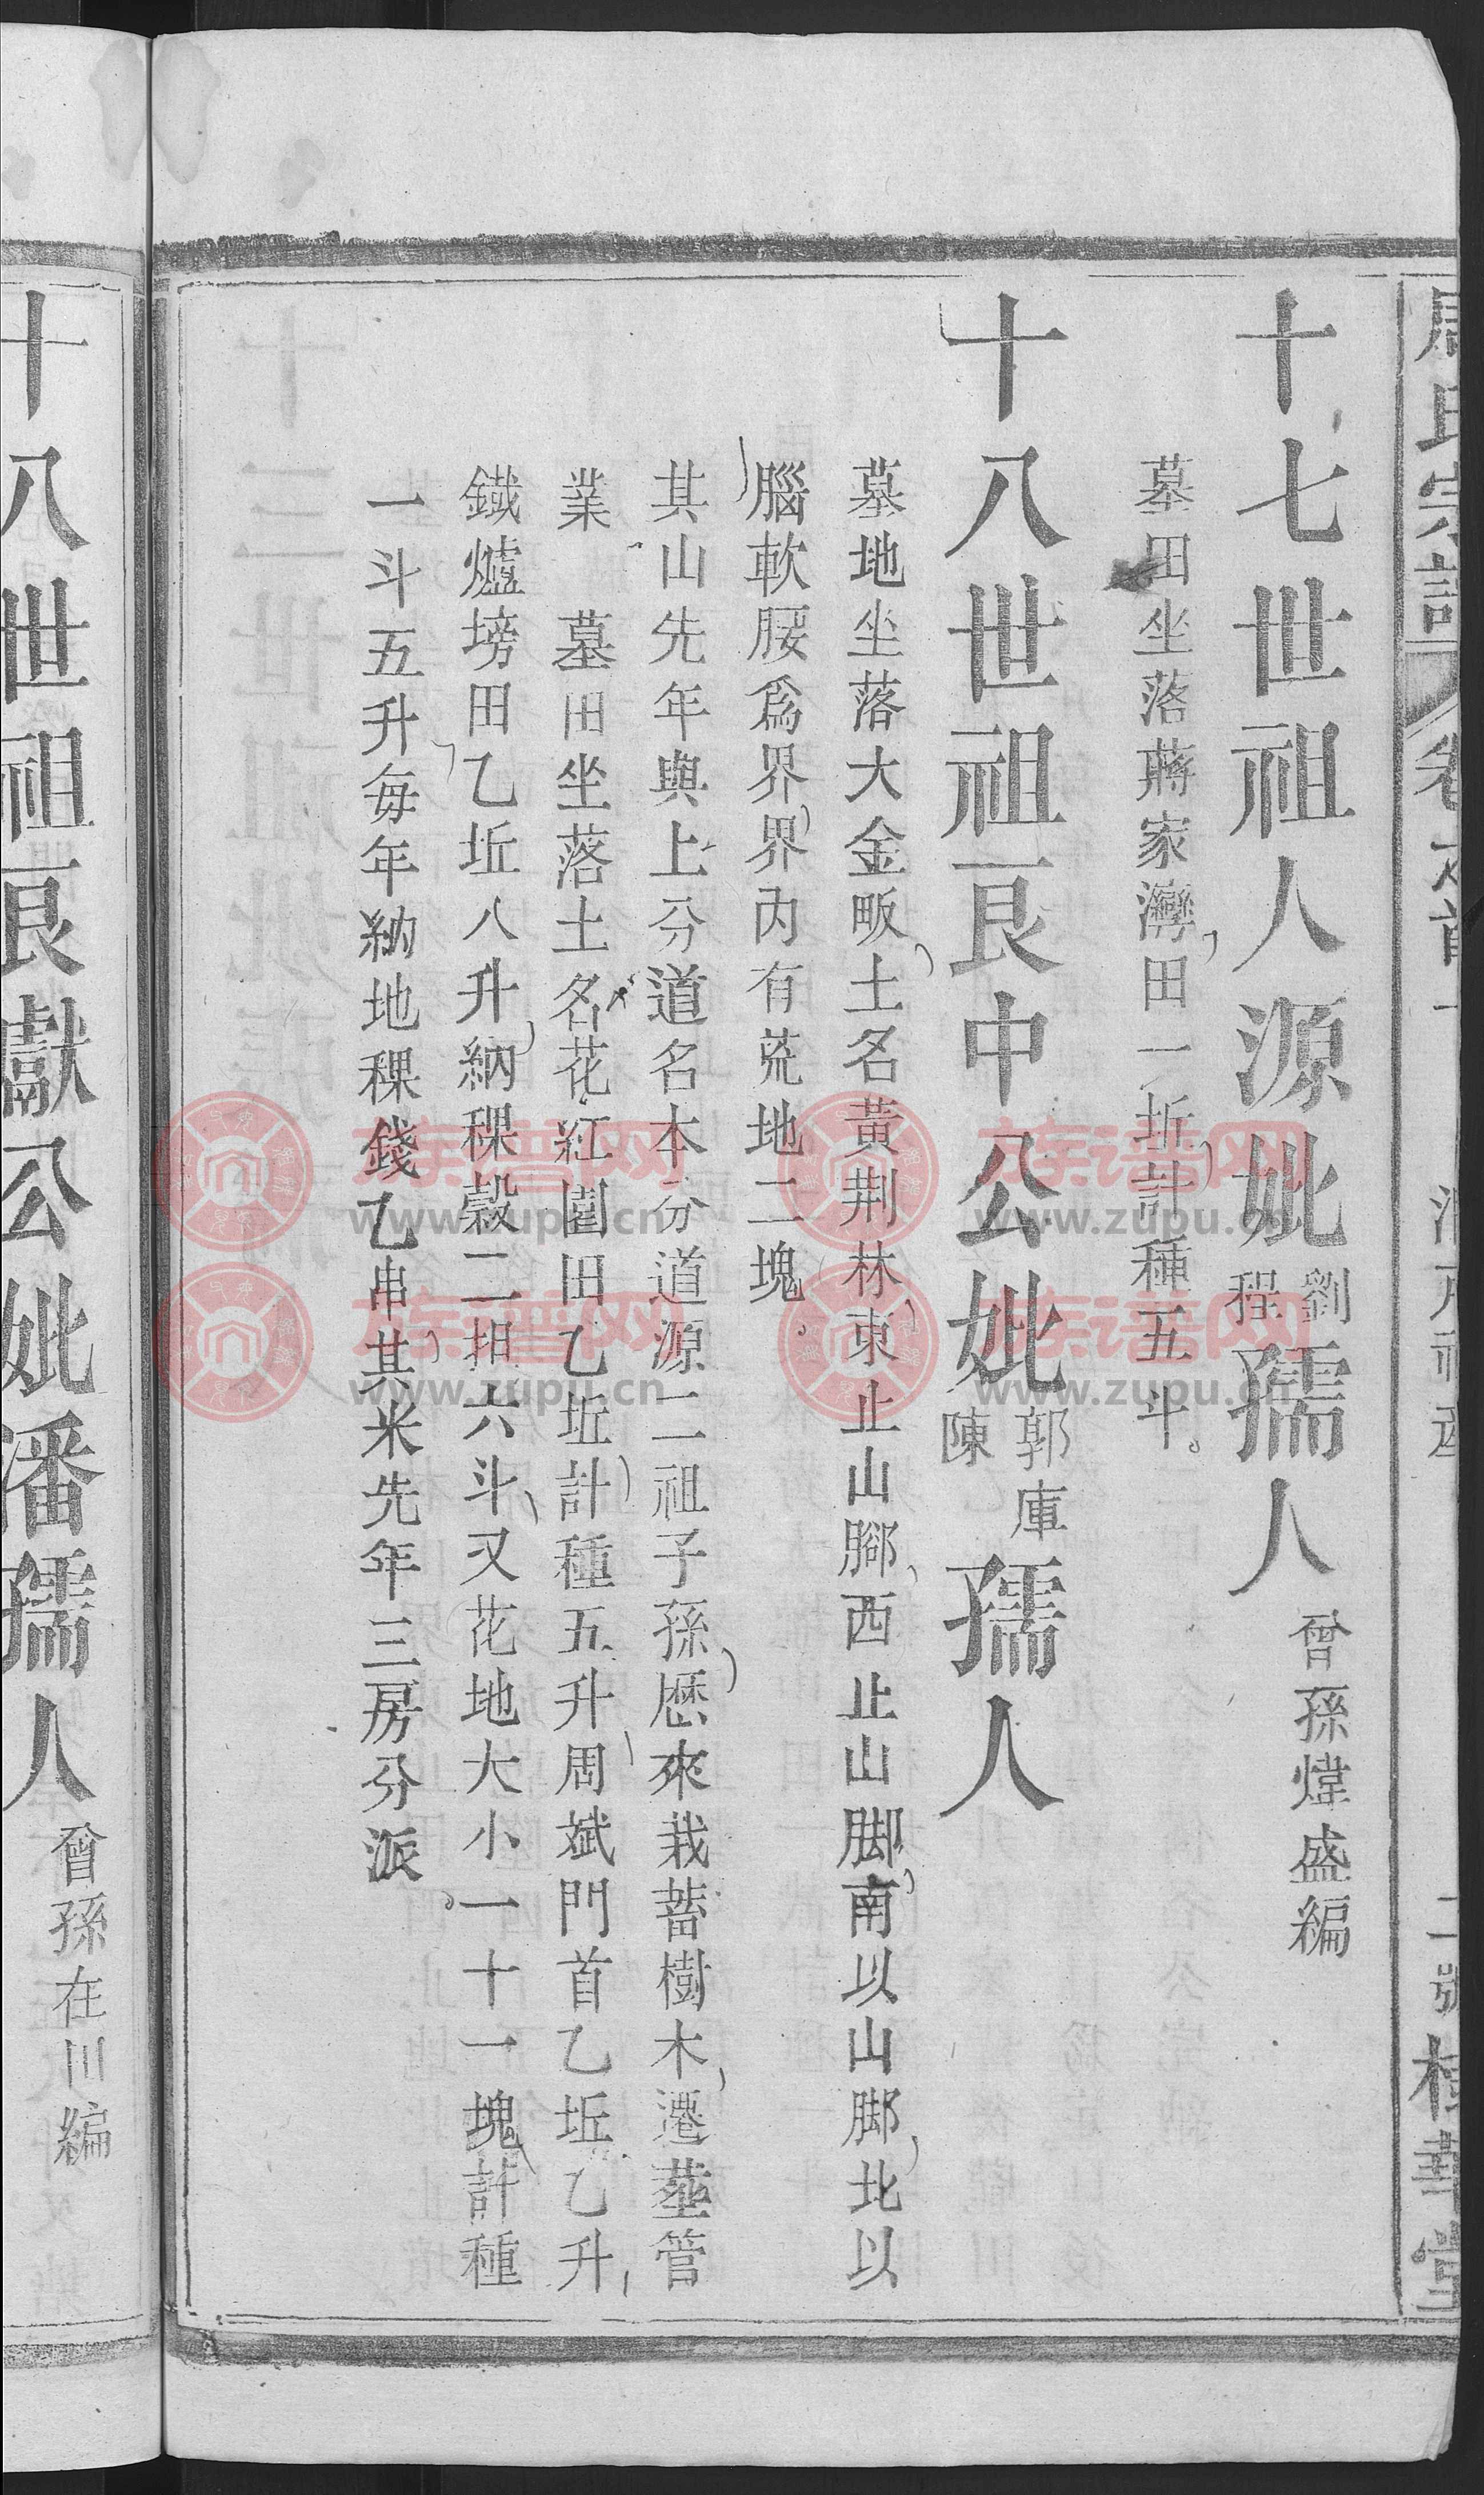 周氏宗譜 卷之首一 二號 樹華堂
十七世祖人源妣劉程孺人 曾孫煒盛編
墓田坐落蔣家灣田一坵計種五斗
十八世祖良中公妣郭庫陳孺人
墓地坐落大金畈土名黃荆林東止山腳西止山脚南以山脚北以
腦軟腰爲界界內有荒地二塊
其山先年與上分道名本分道源二祖子孫歷來栽蓄樹木遷塟管
業 墓田坐落土名花紅園田乙坵計種五升周斌門首乙坵乙升
鐵爐塝田乙坵八升納稞穀二担六斗又花地大小一十一塊計種
一斗五升每年納地稞錢乙串其米先年三房分派
十八世祖良獻公妣潘孺人 曾孫在川編
族谱网
www.zupu.cn
族谱网
www.zupu.cn
族谱网
www.zupu.cn
族谱网
www.zupu.cn